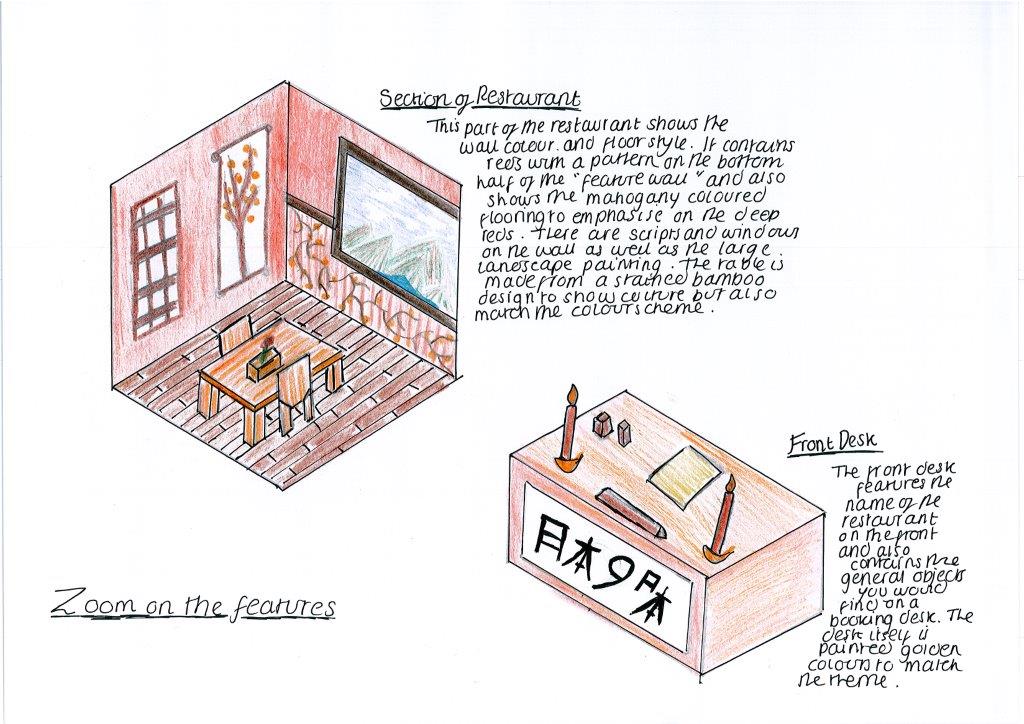 Section of Restaurant
This part of the restaurant shows the
wall colour. and floor style. It contains
reds with a pattern on the bottom
half of the "feature wall" and also
shows the mahogany coloured
flooring to emphasise on the deep
reds. There are scripts and windows
on the wall as well as the large
landscape painting. The table is
made from a stained bamboo
design to show culture but also
match the colour scheme.
Front Desk
The front desk
features the
name of the
restaurant
on the front
and also
contains the
general objects
you would
find on a
booking desk. The
desk itself is
painted golden
colours to match
the theme.
日本の
Zoom on the features